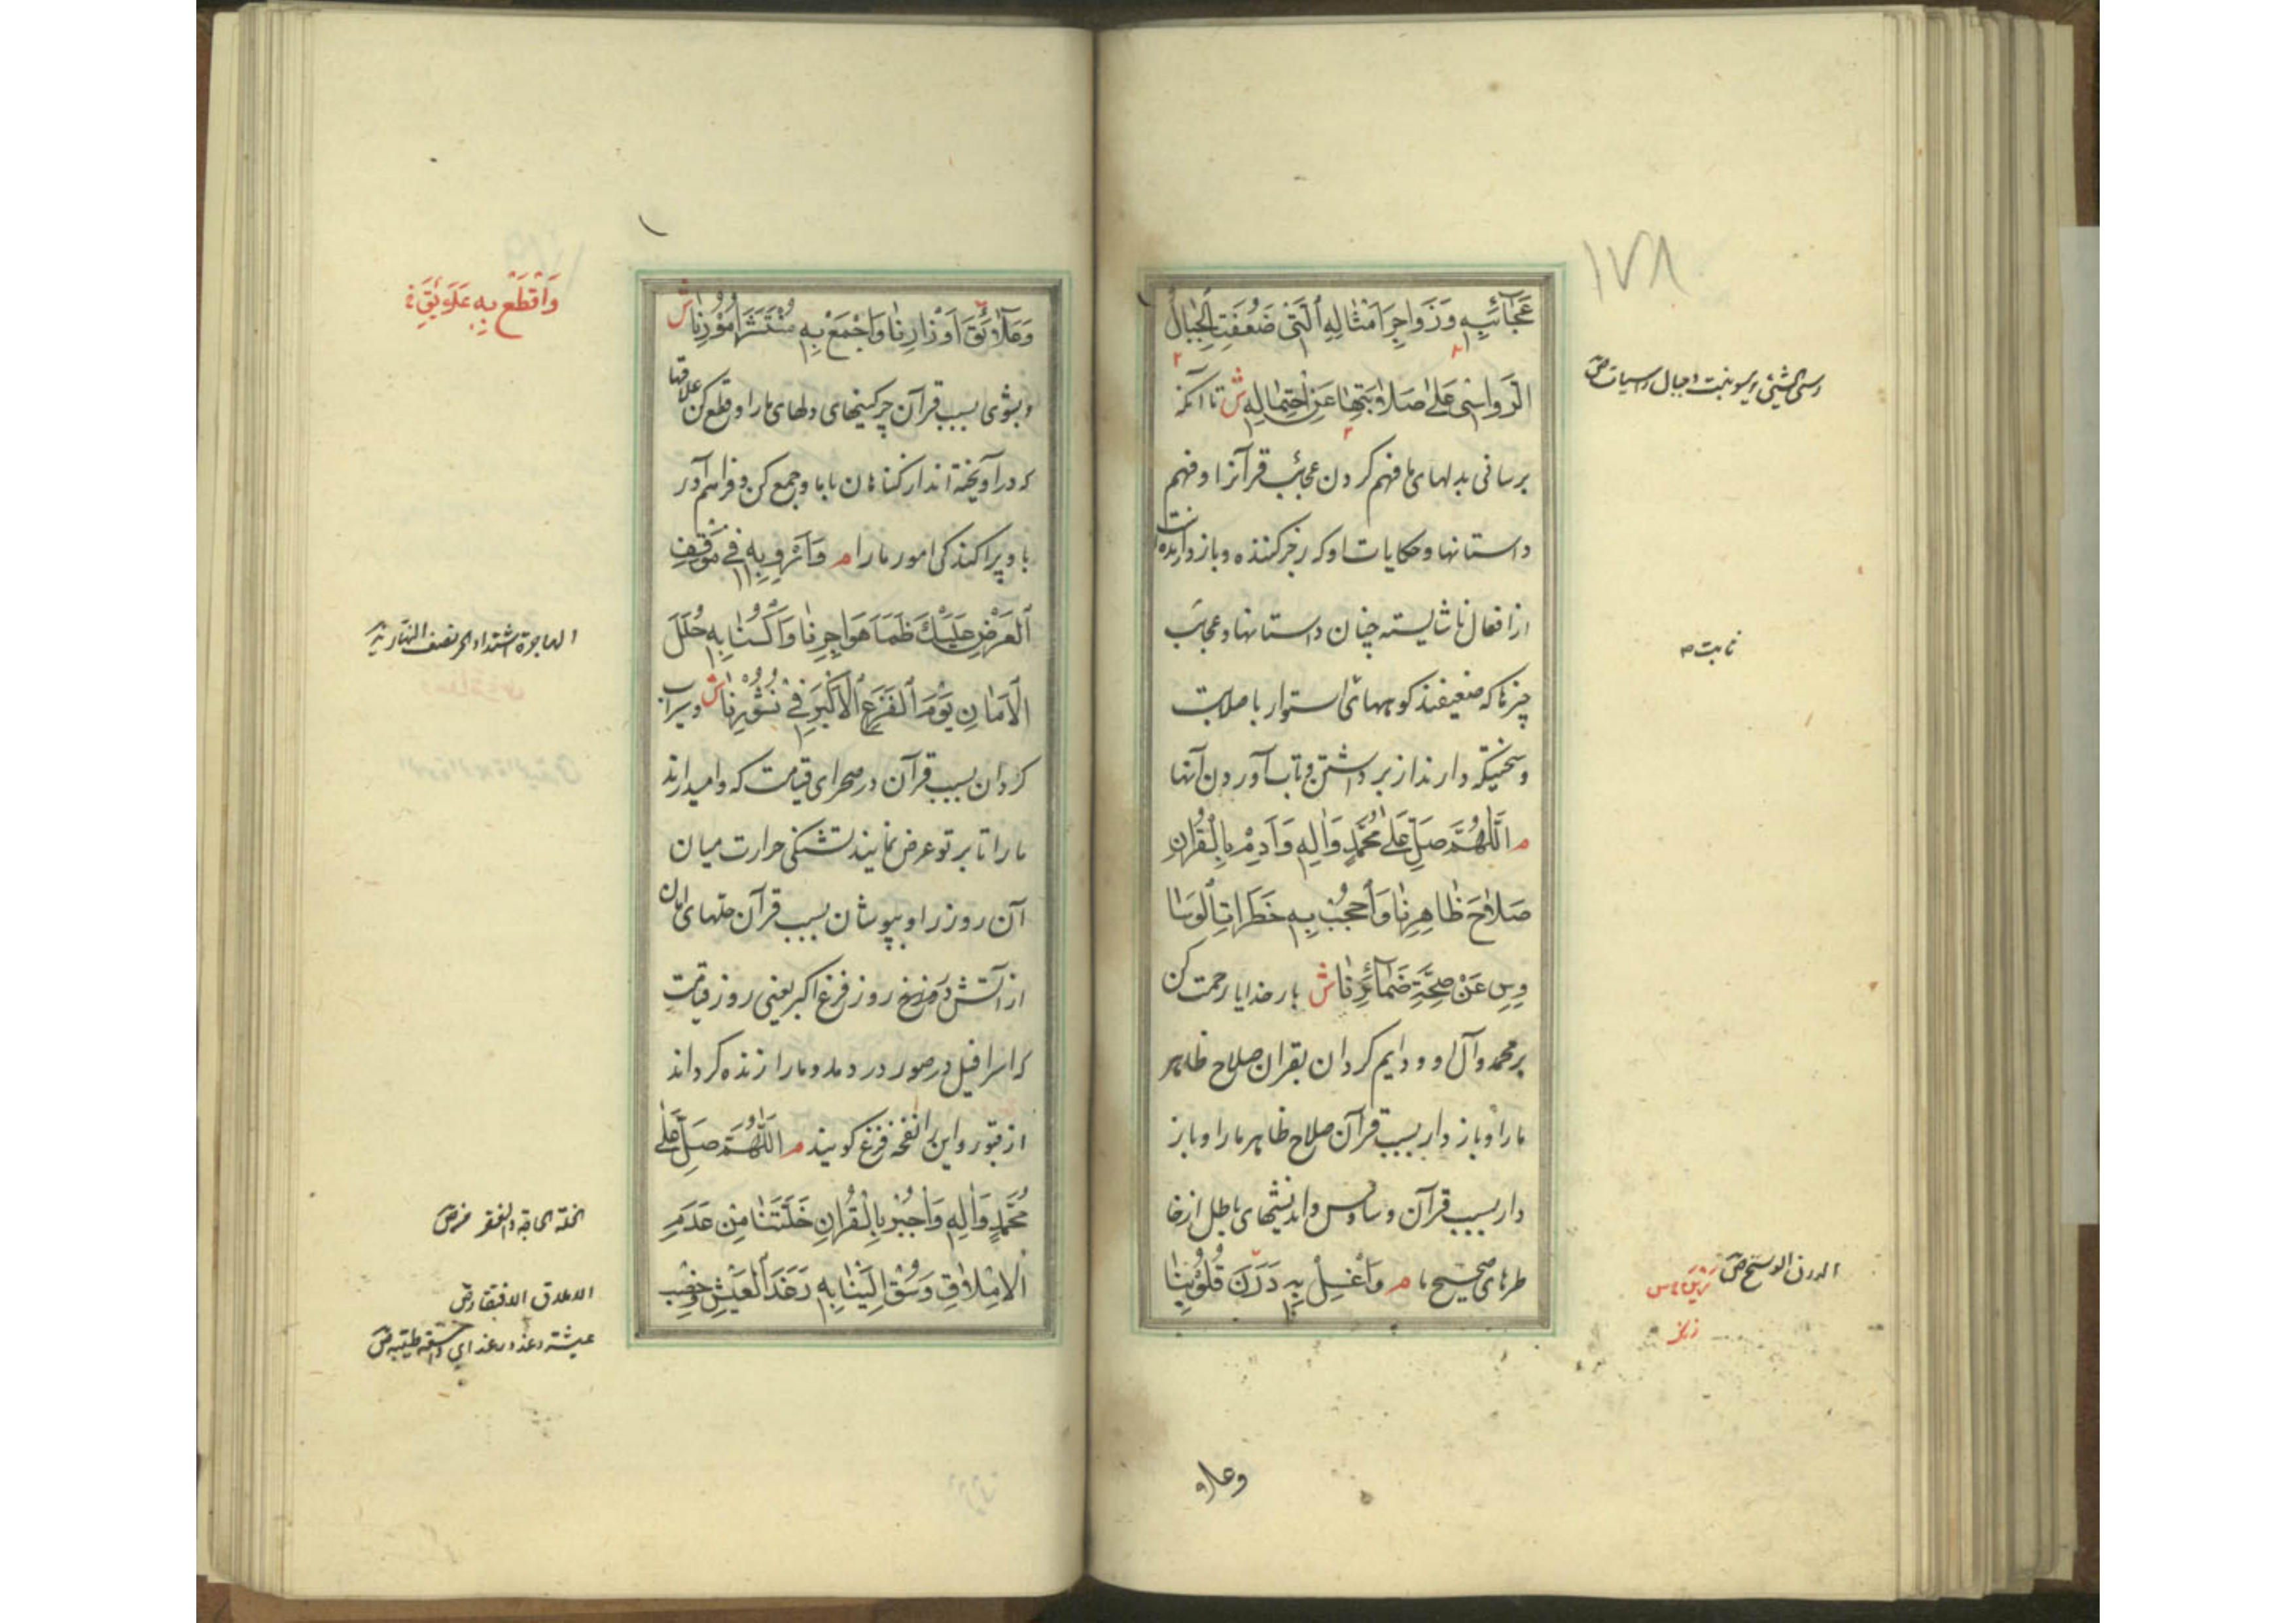 ١٧٨
عَجَآئِبِهِ وَزَواجِرَ اَمْثالِهِ ٱلَّتی ضَعُفَتِ الْجِبالُ
الرَّواسی عَلیٰ صَلابَتِها عَنِ احْتِمالِهِ ش تا آنکه
برسانی بدلهای ما فهم کردن عجائب قرآنرا و فهم
داستانها و حکایات او که زجر کننده و باز دارنده است
از افعال ناشایسته چنان داستانها و عجائب
چیزها که ضعیفند کوههای استوار با صلابت
و سختیکه دارند از برداشتن و تاب آوردن آنها
م اللّٰهُمَّ صَلِّ عَلیٰ مُحَمَّدٍ وَالِهِ وَاَدِمْ بِالْقُرْانِ
صَلاحَ ظاهِرِنا وَاحْجُبْ بِهِ خَطَراتِ الْوَسا
وِسِ عَنْ صِحَّةِ ضَمآئِرِنا ش بار خدایا رحمت کن
بر محمد و آل او و دایم گردان بقران صلاح ظاهر
ما را و باز دار بسبب قرآن صلاح ظاهر ما را و باز
دار بسبب قرآن وساوس و اندیشهای باطل از خا
طرهای صحیح ما م وَاغْسِلْ بِهِ دَرَنَ قُلُوبِنا
ثابت ص
الدرن الوسخ ص
وعلاو
وَعَلآئِقَ اَوْزارِنا وَاجْمَعْ بِهِ مُنْتَشَرَ اُمُورِنا ش
و بشوی بسبب قرآن چرکینیهای دلهای ما را و قطع کن علاقها
که در آویخته اند از گناهان با ما و جمع کن و فراهم آور
با و پراکندگی امور ما را م وَاَرْوِ بِهِ فی مَوْقِفِ
الْعَرْضِ عَلَیْكَ ظَمَاَ هَواجِرِنا وَاکْسُنا بِهِ حُلَلَ
الْاَمانِ یَوْمَ الْفَزَعِ الْاَکْبَرِ فی نُشُورِنا ش و سیراب
گردان بسبب قرآن در صحرای قیامت که وامیدارند
ما را تا بر تو عرض نمایند تشنگی حرارت میان
آن روز را و بپوشان بسبب قرآن حلهای امان
از آتش دوزخ روز فزع اکبر یعنی روز قیامت
که اسرافیل در صور در دمد و ما را زنده گرداند
از قبور و این را نفخه فزع گویند م اللّٰهُمَّ صَلِّ عَلیٰ
مُحَمَّدٍ وَالِهِ وَاجْبُرْ بِالْقُرْانِ خَلَّتَنا مِنْ عَدَمِ
الْاِمْلاقِ وَسُقْ اِلَیْنا بِهِ رَغَدَ الْعَیْشِ وَخِصْبَ
وَاقْطَعْ بِهِ عَلَوئِقَ
الهاجرة اشتداد الحر نصف النهار
الخلة الحاجة والفقر ص
الاملاق الافتقار ص
عیشة رغد و رغد ای واسعة طیبة ص